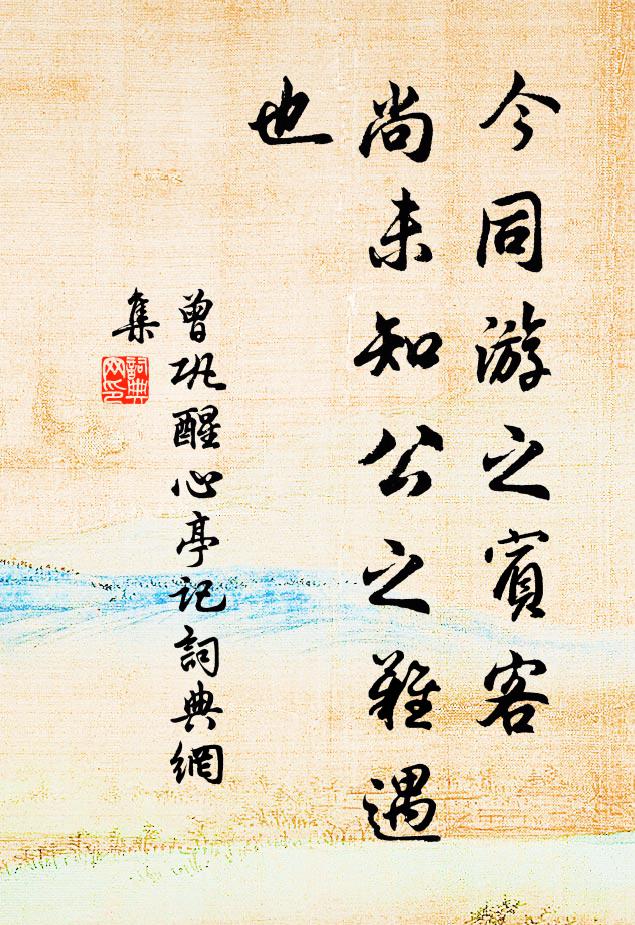 今同游之賓客
尚未知公之難遇
也
曾巩醒心亭记詞典網
集
詞典
网印